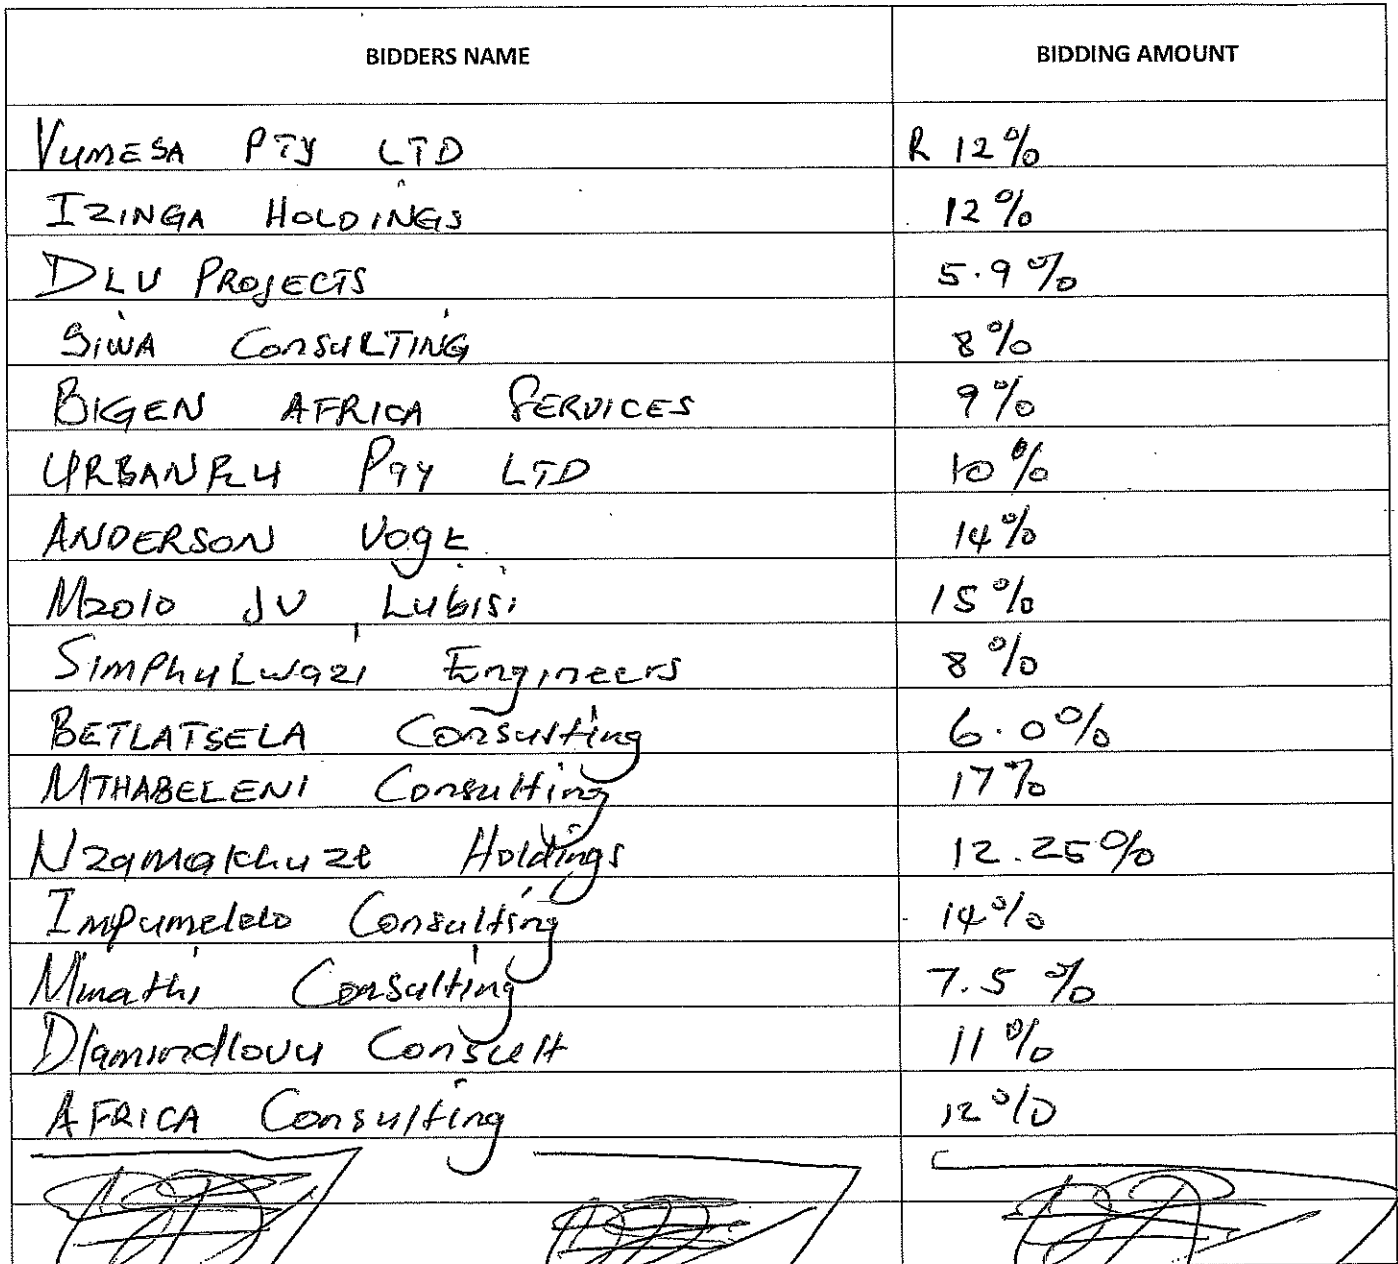 BIDDERS NAME BIDDING AMOUNT
VUMESA PTY LTD R 12%
IZINGA HOLDINGS 12%
DLV PROJECTS 5.9%
SIWA CONSULTING 8%
BIGEN AFRICA SERVICES 9%
PTY LTD 10%
ANDERSON Vogt 14%
Mzolo JV Lubisi 15%
SimPhyLwazi Engineers 8%
BETLATSELA Consulting 6.0%
MTHABELENI Consulting 17%
Nzamakhuze Holdings 12.25%
Impumelelo Consulting 14%
Mmathi Consulting 7.5%
Dlamindlovu Consult 11%
AFRICA Consulting 12%